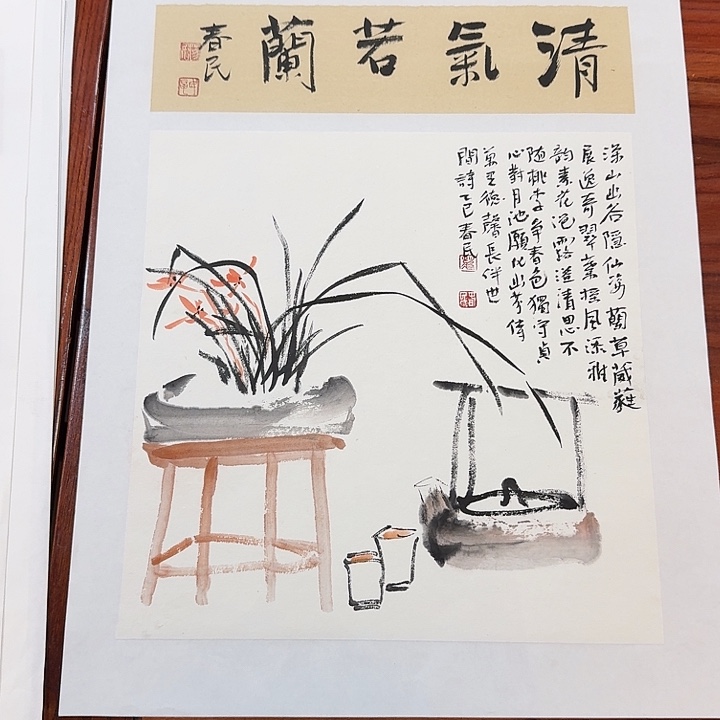 清氣若蘭
春民
深山幽谷隱仙姿蘭草葳蕤
展逸奇翠葉搖風添雅
韵素花浥露溢清思不
随桃李争春色獨守貞
心對月池願化幽芳传
萬里德馨長伴世
間詩乙巳春民